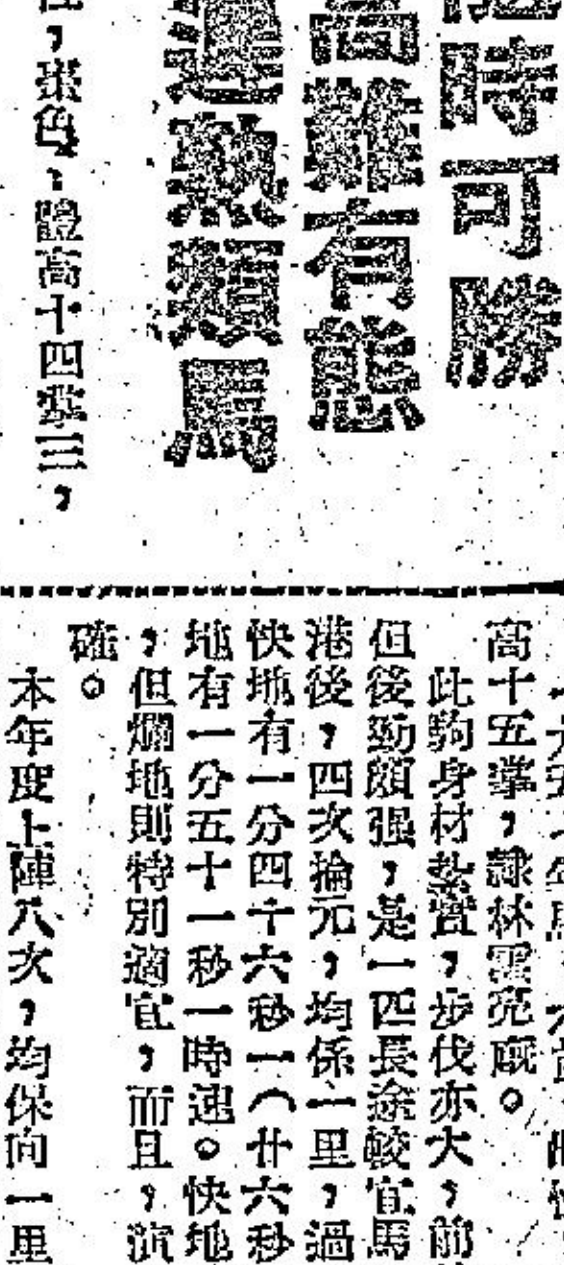 時可勝
高難有態
達熱類馬
，棗色，體高十四掌三，
高十五掌，隸林雲亮廐。
此駒身材紮實，步伐亦大，前
但後勁頗强，是一匹長途較宜馬
港後，四次掄元，均係一里，過
快地有一分四十六秒一（廿六秒
地有一分五十一秒一時速。快地
，但爛地則特別適宜，而且，演
確。
本年度上陣八次，均保向一里